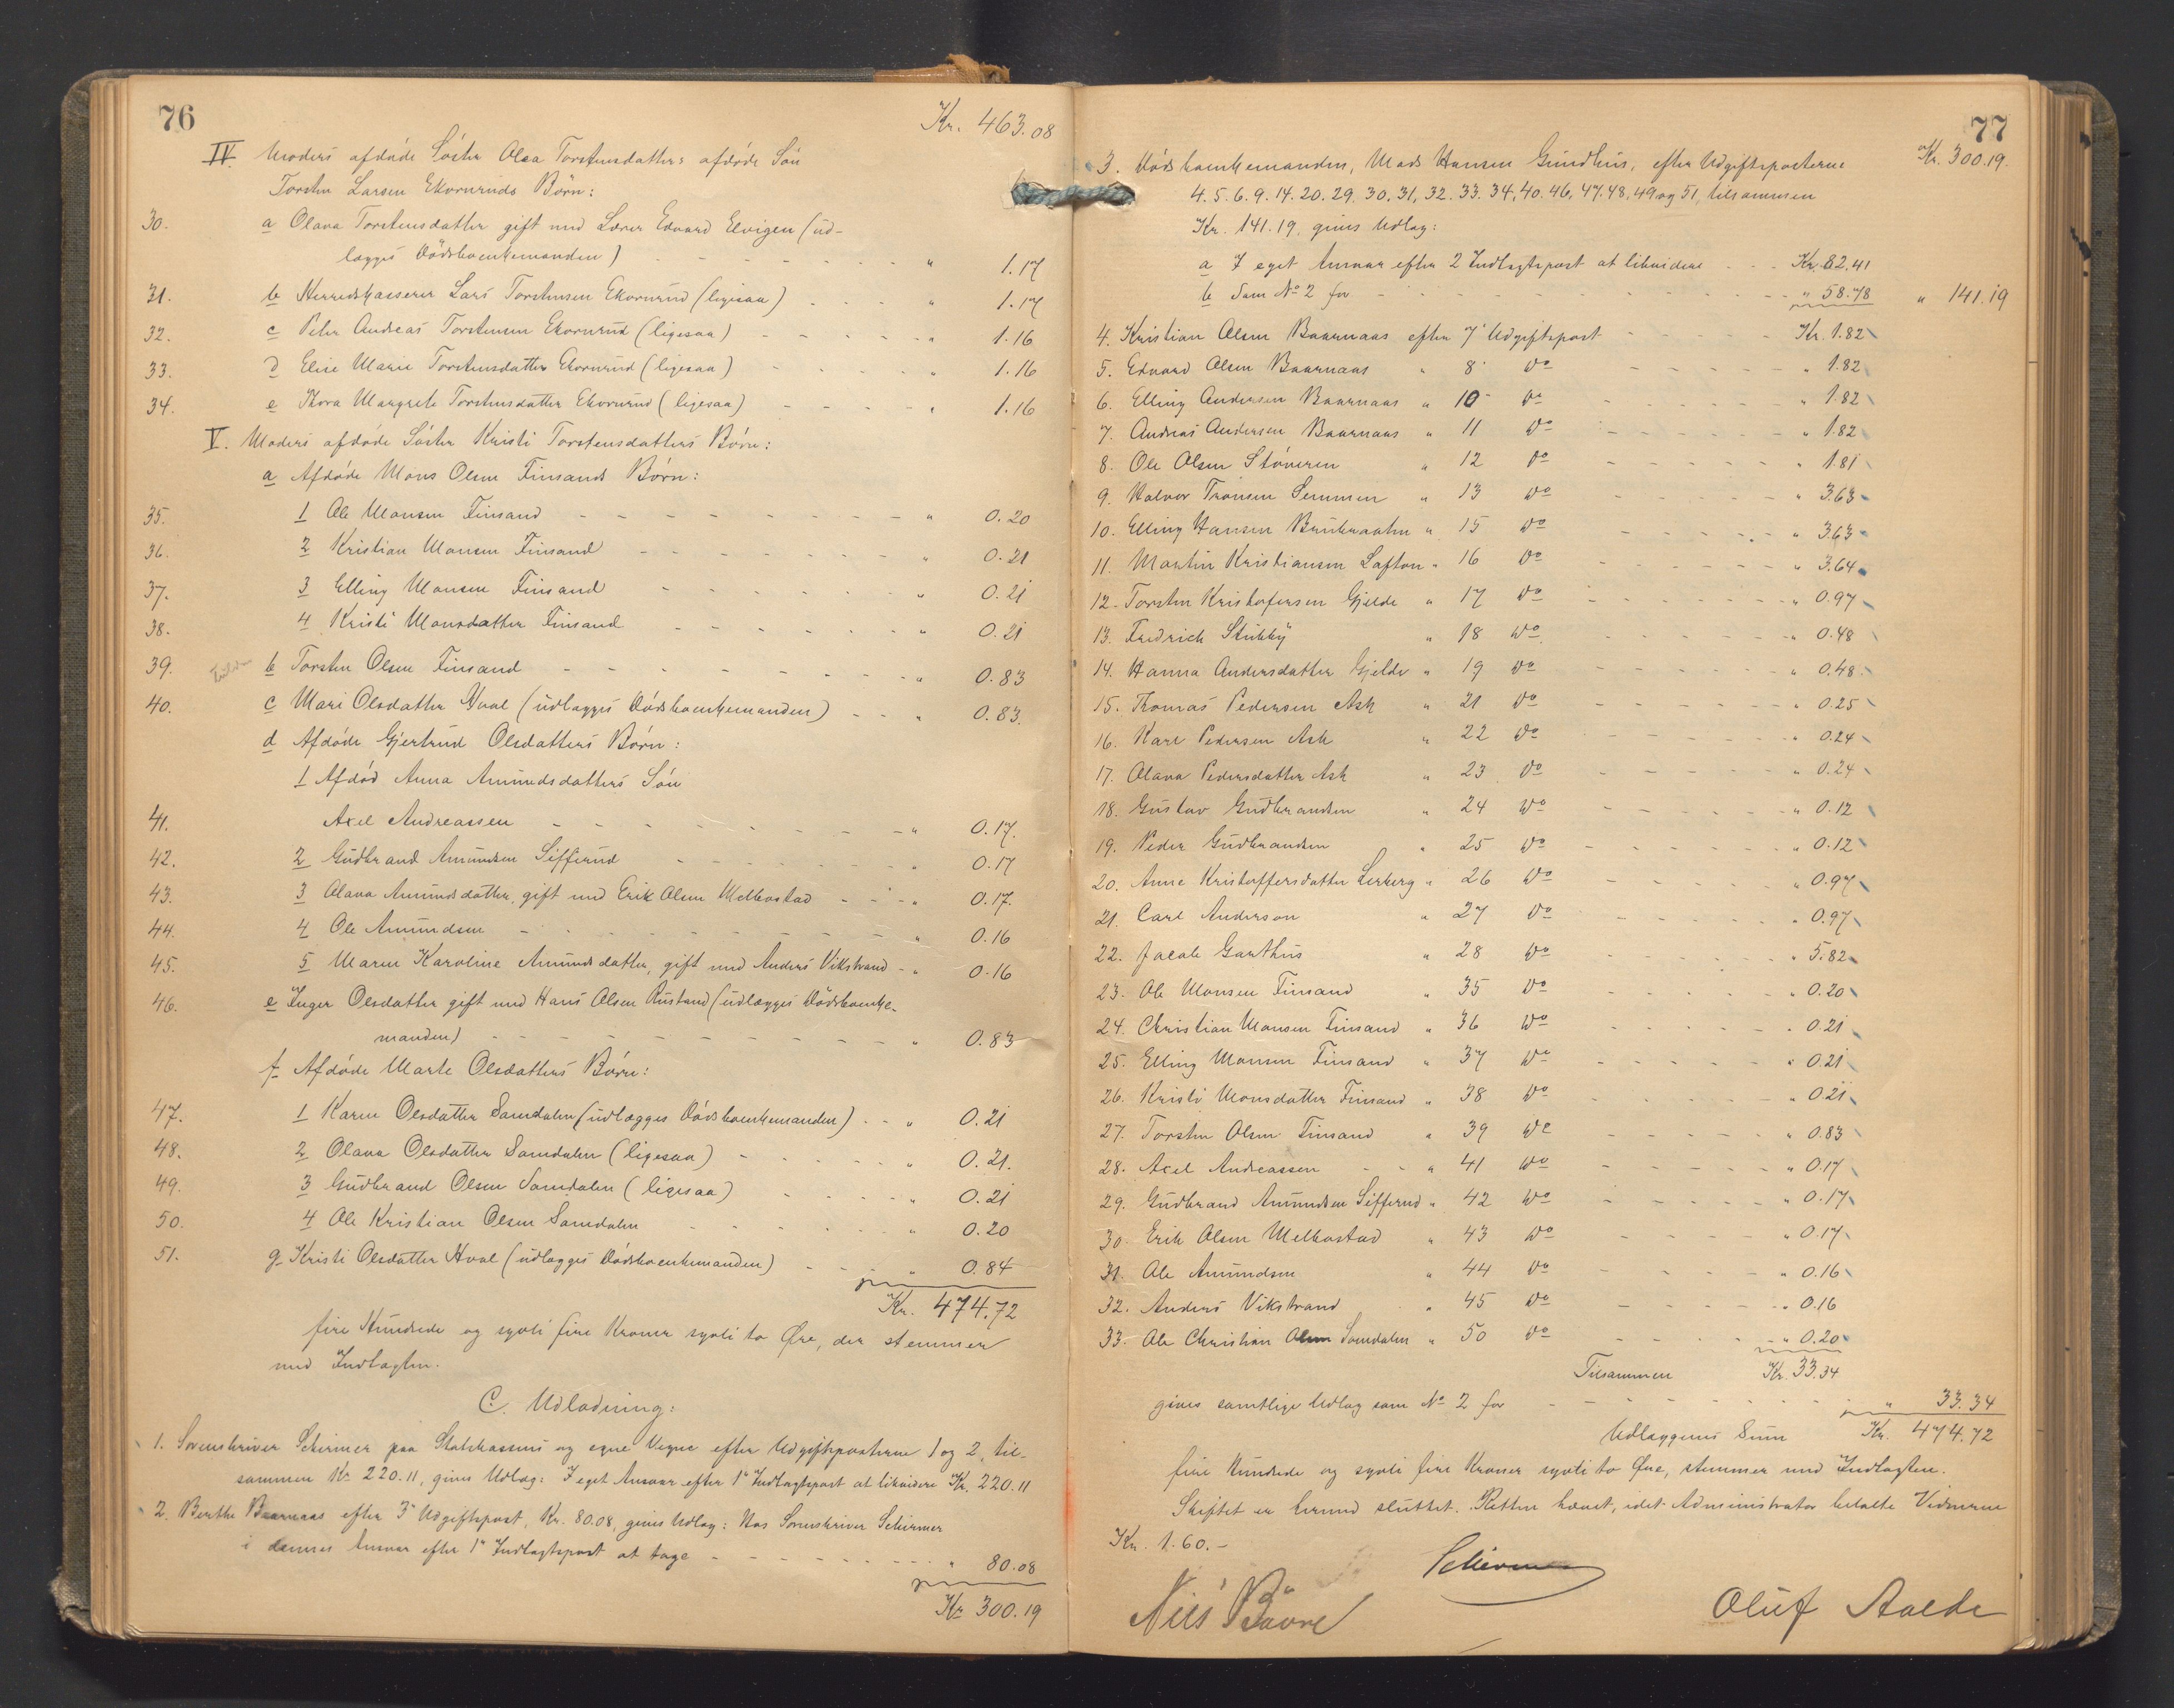 76
Kr. 463.08
IV. Moders afdøde Søster Olea Torstensdatters afdøde Søn
Torsten Larsen Ekornruds Børn:
30. a Olava Torstensdatter gift med Lærer Edvard Elvigen (ud-
lægges Dødsboenhemanden) - - - " 1.17
31. b Herredskasserer Lars Torstensen Ekornrud (ligesaa) - - - " 1.17
32. c Peter Andreas Torstensen Ekornrud (ligesaa) - - - " 1.16
33. d Elise Marie Torstensdatter Ekornrud (ligesaa) - - - " 1.16
34. e Thora Margrete Torstensdatter Ekornrud (ligesaa) - - - " 1.16
V. Moders afdøde Søster Kristi Torstensdatters Børn:
a Afdøde Mons Olsen Finsands Børn:
35. 1 Ole Monsen Finsand - - - " 0.20
36. 2 Kristian Monsen Finsand - - - " 0.21
37. 3 Elling Monsen Finsand - - - " 0.21
38. 4 Kristi Monsdatter Finsand - - - " 0.21
39. b Torsten Olsen Finsand - - - " 0.83
40. c Mari Olsdatter Hval (udlægges Dødsboenhemanden) - - " 0.83.
d Afdøde Gjertrud Olsdatters Børn:
1 Afdød Anna Amundsdatters Søn
41. Axel Andreassen - - - " 0.17.
42. 2 Gudbrand Amundsen Sifferud - - - " 0.17
43. 3 Olava Amundsdatter, gift med Erik Olsen Melbostad - - - " 0.17.
44. 4 Ole Amundsen - - - " 0.16
45. 5 Maren Karoline Amundsdatter, gift med Anders Vikstrand - " 0.16
46. e Inger Olsdatter gift med Hans Olsen Rustand (udlægges Dødsboenhe-
manden) - - - " 0.83
f Afdøde Marte Olsdatters Børn:
47. 1 Karen Olsdatter Samdalen (udlægges Dødsboenhemanden) - - " 0.21
48. 2 Olava Olsdatter Samdalen (ligesaa) - - - " 0.21.
49. 3 Gudbrand Olsen Samdalen (ligesaa) - - - " 0.21
50. 4 Ole Kristian Olsen Samdalen - - - " 0.20
51. g Kristi Olsdatter Hval (udlægges Dødsboenhemanden) - - - " 0.84
Kr. 474.72
fire Hundrede og sytti fire Kroner sytti to Øre, der stemmer
med Indtægten.
C. Udlodning:
1. Sorenskriver Schirmer paa Statskassens og egne Vegne efter Udgiftsposterne 1 og 2, til-
sammen Kr. 220.11, gives Udlæg: I eget Ansvar efter 1ste Indtægtspost at likvidere Kr. 220.11
2. Berthe Baarnaas efter 3die Udgiftspost, Kr. 80.08, gives Udlæg: Hos Sorenskriver Schirmer
i dennes Ansvar efter 1ste Indtægtspost at tage - - - " 80.08
Kr. 300.19
77
Kr. 300.19.
3. Dødsboenhemanden, Mads Hansen Gundhus, efter Udgiftsposterne
4. 5. 6. 9. 14. 20. 29. 30. 31, 32. 33. 34, 40. 46, 47. 48, 49 og 51, tilsammen
Kr. 141.19, gives Udlæg:
a I eget Ansvar efter 2 Indtægtspost at likvidere - - - Kr. 82.41
b Som No 2 for - - - " 58.78 " 141.19
4. Kristian Olsen Baarnaas efter 7' Udgiftspost - - - Kr. 1.82
5. Edvard Olsen Baarnaas " 8' Do - - - " 1.82
6. Elling Andersen Baarnaas " 10 Do - - - " 1.82
7. Andreas Andersen Baarnaas " 11 Do - - - " 1.82
8. Ole Olsen Støveren " 12 Do - - - " 1.81
9. Halvor Tronsen Semmen " 13 Do - - - " 3.63
10. Elling Hansen Brukraaten " 15 Do - - - " 3.63
11. Martin Kristiansen Lafton " 16 Do - - - " 3.64
12. Torsten Kristofersen Gjelde " 17 Do - - - " 0.97
13. Fredrich Stubby " 18 Do - - - " 0.48
14. Hanna Andersdatter Gjelde " 19 Do - - - " 0.48
15. Thomas Pedersen Ask " 21 Do - - - " 0.25
16. Karl Pedersen Ask " 22 Do - - - " 0.24
17. Olava Pedersdatter Ask " 23 Do - - - " 0.24
18. Gustav Gudbrandsen " 24 Do - - - " 0.12
19. Peder Gudbrandsen " 25 Do - - - " 0.12
20. Anne Kristoffersdatter Lerberg " 26 Do - - - " 0.97
21. Carl Anderson " 27 Do - - - " 0.97
22. Jacob Garthus " 28 Do - - - " 5.82
23. Ole Monsen Finsand " 35 Do - - - " 0.20
24. Christian Monsen Finsand " 36 Do - - - " 0.21
25. Elling Monsen Finsand " 37 Do - - - " 0.21
26. Kristi Monsdatter Finsand " 38 Do - - - " 0.21
27. Torsten Olsen Finsand " 39 Do - - - " 0.83
28. Axel Andreassen - - " 41 Do - - - " 0.17
29. Gudbrand Amundsen Sifferud " 42 Do - - - " 0.17
30. Erik Olsen Melbostad " 43 Do - - - " 0.17
31. Ole Amundsen " 44 Do - - - " 0.16
32. Anders Vikstrand " 45 Do - - - " 0.16
33. Ole Christian Olsen Samdalen " 50 Do - - - " 0.20
Tilsammen Kr. 33.34
gives samtlige Udlæg som No 2 for - - - " 33.34
Udlæggenes Sum Kr. 474.72
fire Hundrede og sytti fire Kroner sytti to Øre, stemmer med Indtægten.
Skiftet er hermed sluttet. Retten hævet, idet Administrator betalte Vidnerne
Kr. 1.60.-
Schirmer
Nils Bøvre
Oluf Aalde